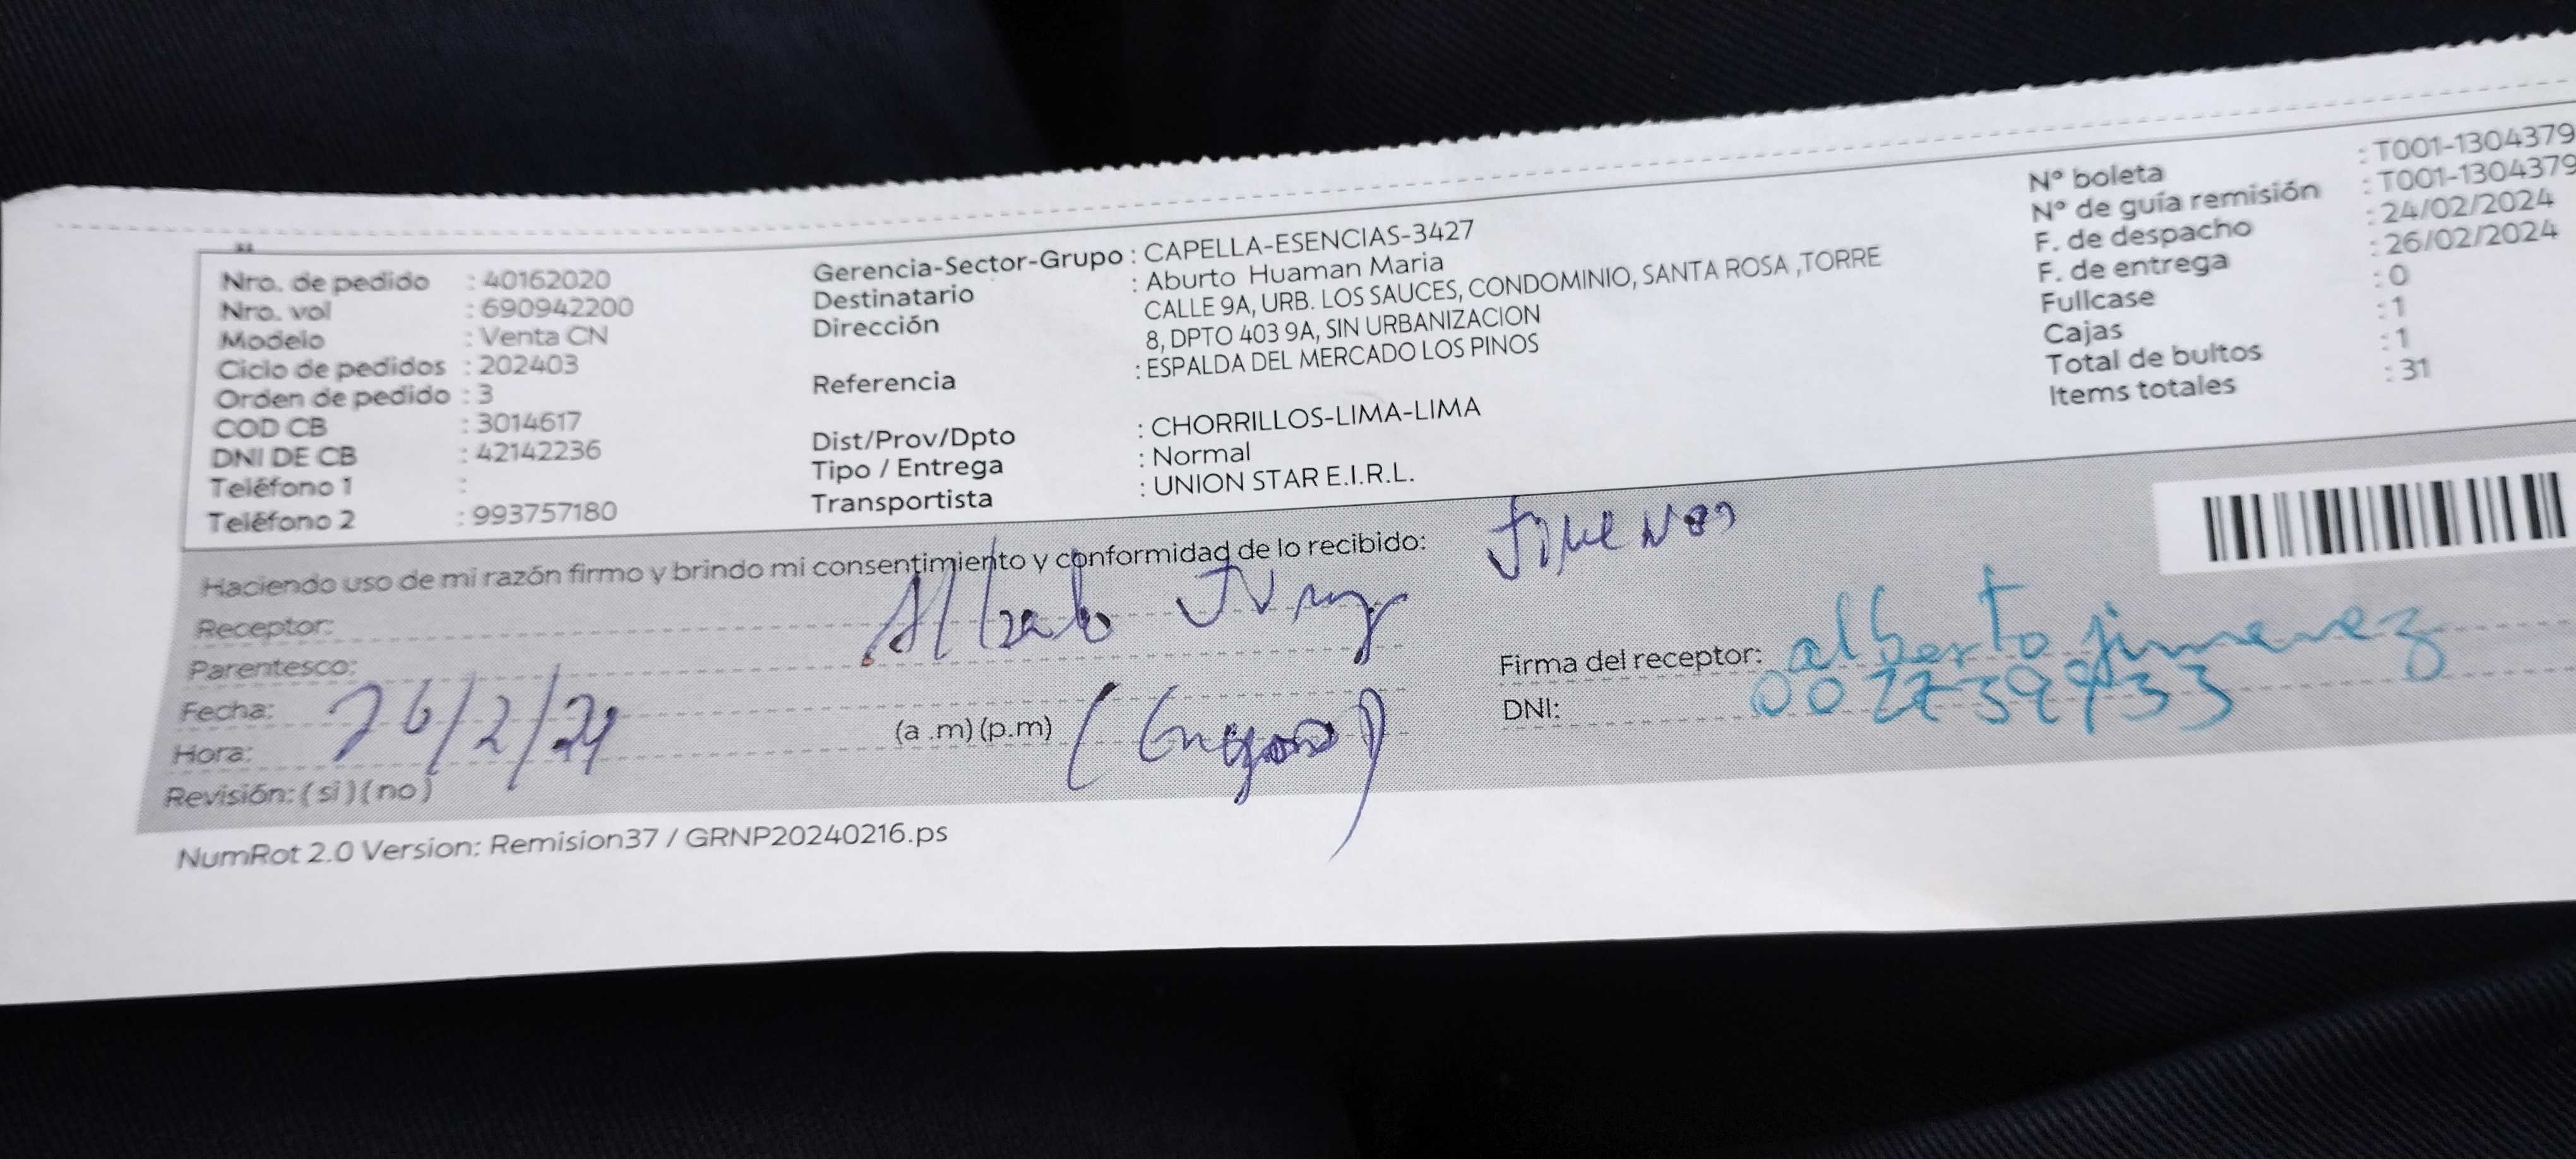 Nro. de pedido : 40162020
Nro. vol : 690942200
Modelo : Venta CN
Ciclo de pedidos : 202403
Orden de pedido : 3
COD CB : 3014617
DNI DE CB : 42142236
Teléfono 1 :
Teléfono 2 : 993757180
Gerencia-Sector-Grupo : CAPELLA-ESENCIAS-3427
Destinatario : Aburto Huaman Maria
Dirección CALLE 9A, URB. LOS SAUCES, CONDOMINIO, SANTA ROSA ,TORRE
8, DPTO 403 9A, SIN URBANIZACION
Referencia : ESPALDA DEL MERCADO LOS PINOS
Dist/Prov/Dpto : CHORRILLOS-LIMA-LIMA
Tipo / Entrega : Normal
Transportista : UNION STAR E.I.R.L.
Nº boleta : T001-1304379
Nº de guía remisión : T001-1304379
F. de despacho : 24/02/2024
F. de entrega : 26/02/2024
Fullcase : 0
Cajas : 1
Total de bultos : 1
Items totales : 31
Haciendo uso de mi razón firmo y brindo mi consentimiento y conformidad de lo recibido:
Receptor:
Parentesco:
Fecha: 26/2/24
Hora: (a .m) (p.m)
Revisión: ( si ) ( no )
Firma del receptor: alberto jimenez
DNI:
NumRot 2.0 Version: Remision37 / GRNP20240216.ps